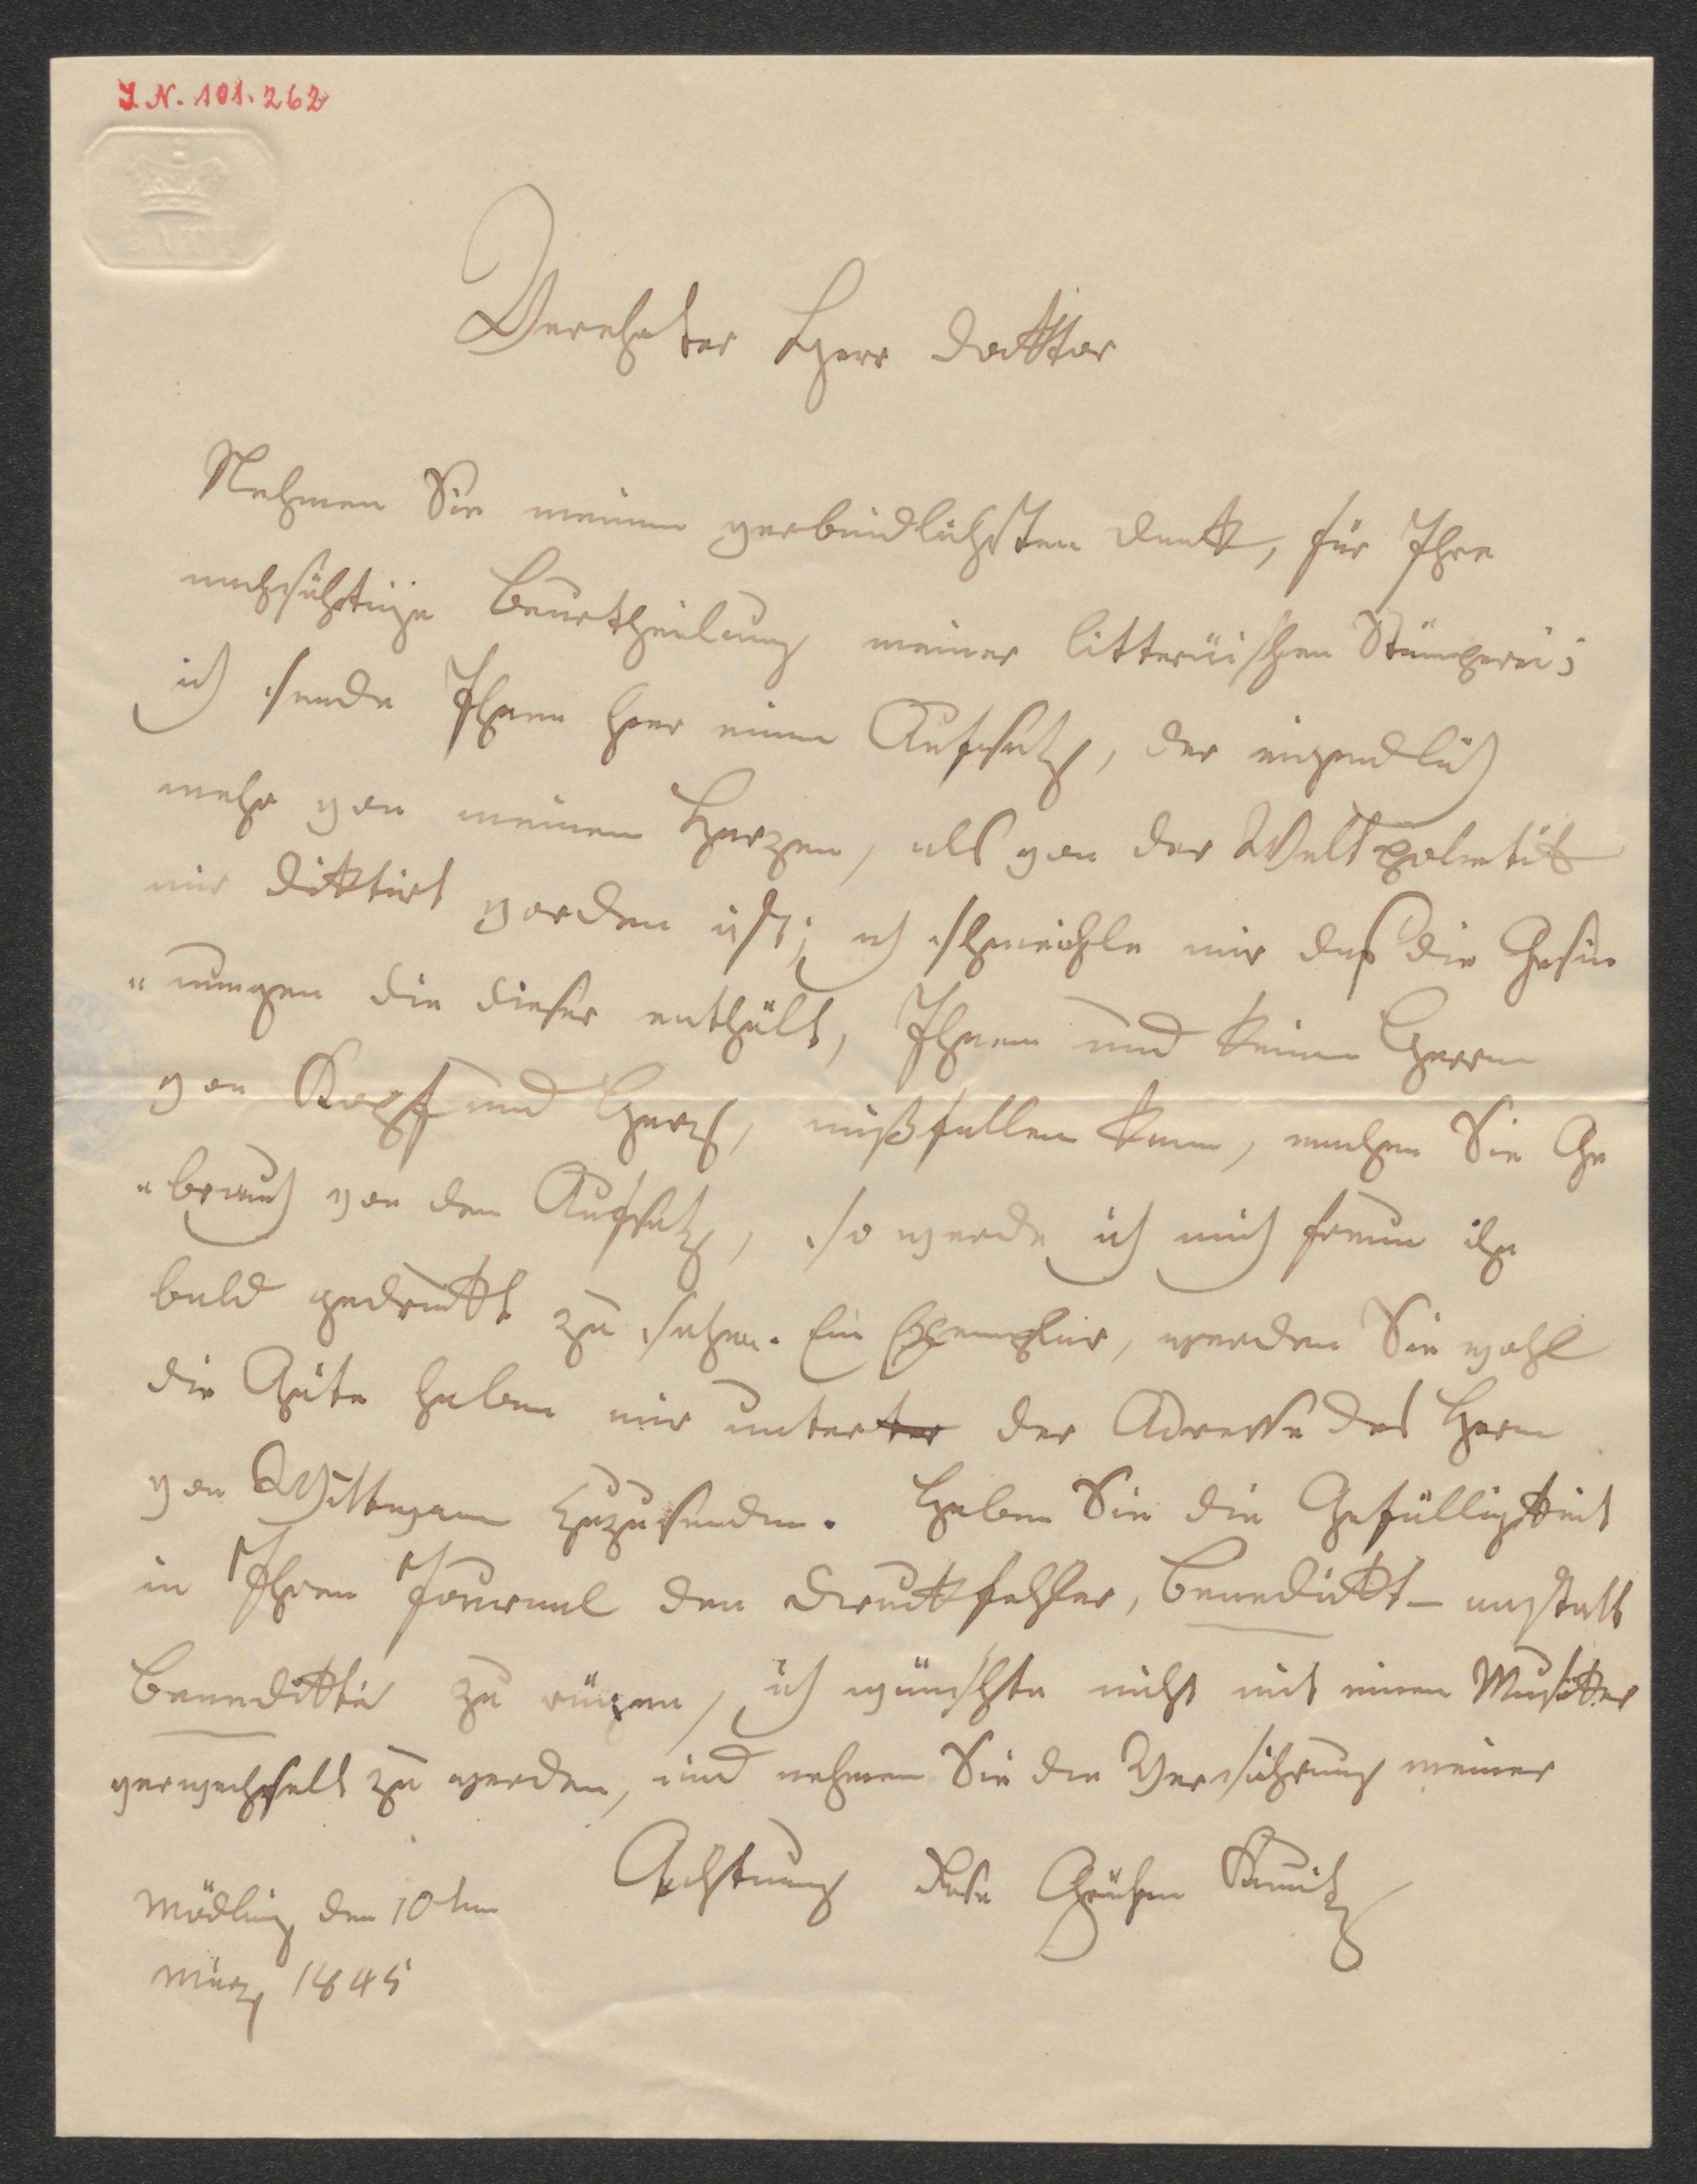 I. N. 101.262
Verehrter Herr Doktor
Nehmen Sie meinen verbindlichsten Dank, für Ihre
nachsichtige Beurtheilung meiner litterärischen Stümperei;
ich sende Ihnen hier einen Aufsatz, der eigendlich
mehr von meinem Herzen, als von der Welt
mir diktirt worden ist; ich schmeichle mir daß die Gesin
"nungen die dieser enthält, Ihnen und keinen Herrn
von Kopf und Herz, mißfallen kann, machen Sie Ge
"brauch von dem Aufsatz, so werde ich mich freuen ihn
bald gedrukt zu sehen. Ein Exemplar, werden Sie wohl
die Güte haben mir unter der Adresse des Herrn
von zuzusenden. Haben Sie die Gefälligkeit
in Ihren Journal den Drukfehler, Benedikt – anstatt
zu rügen, ich wünschte nicht mit einen Musiker
verwechselt zu werden, und nehmen Sie die Versichrung meiner
Achtung
Mödling den 10ten
März 1845